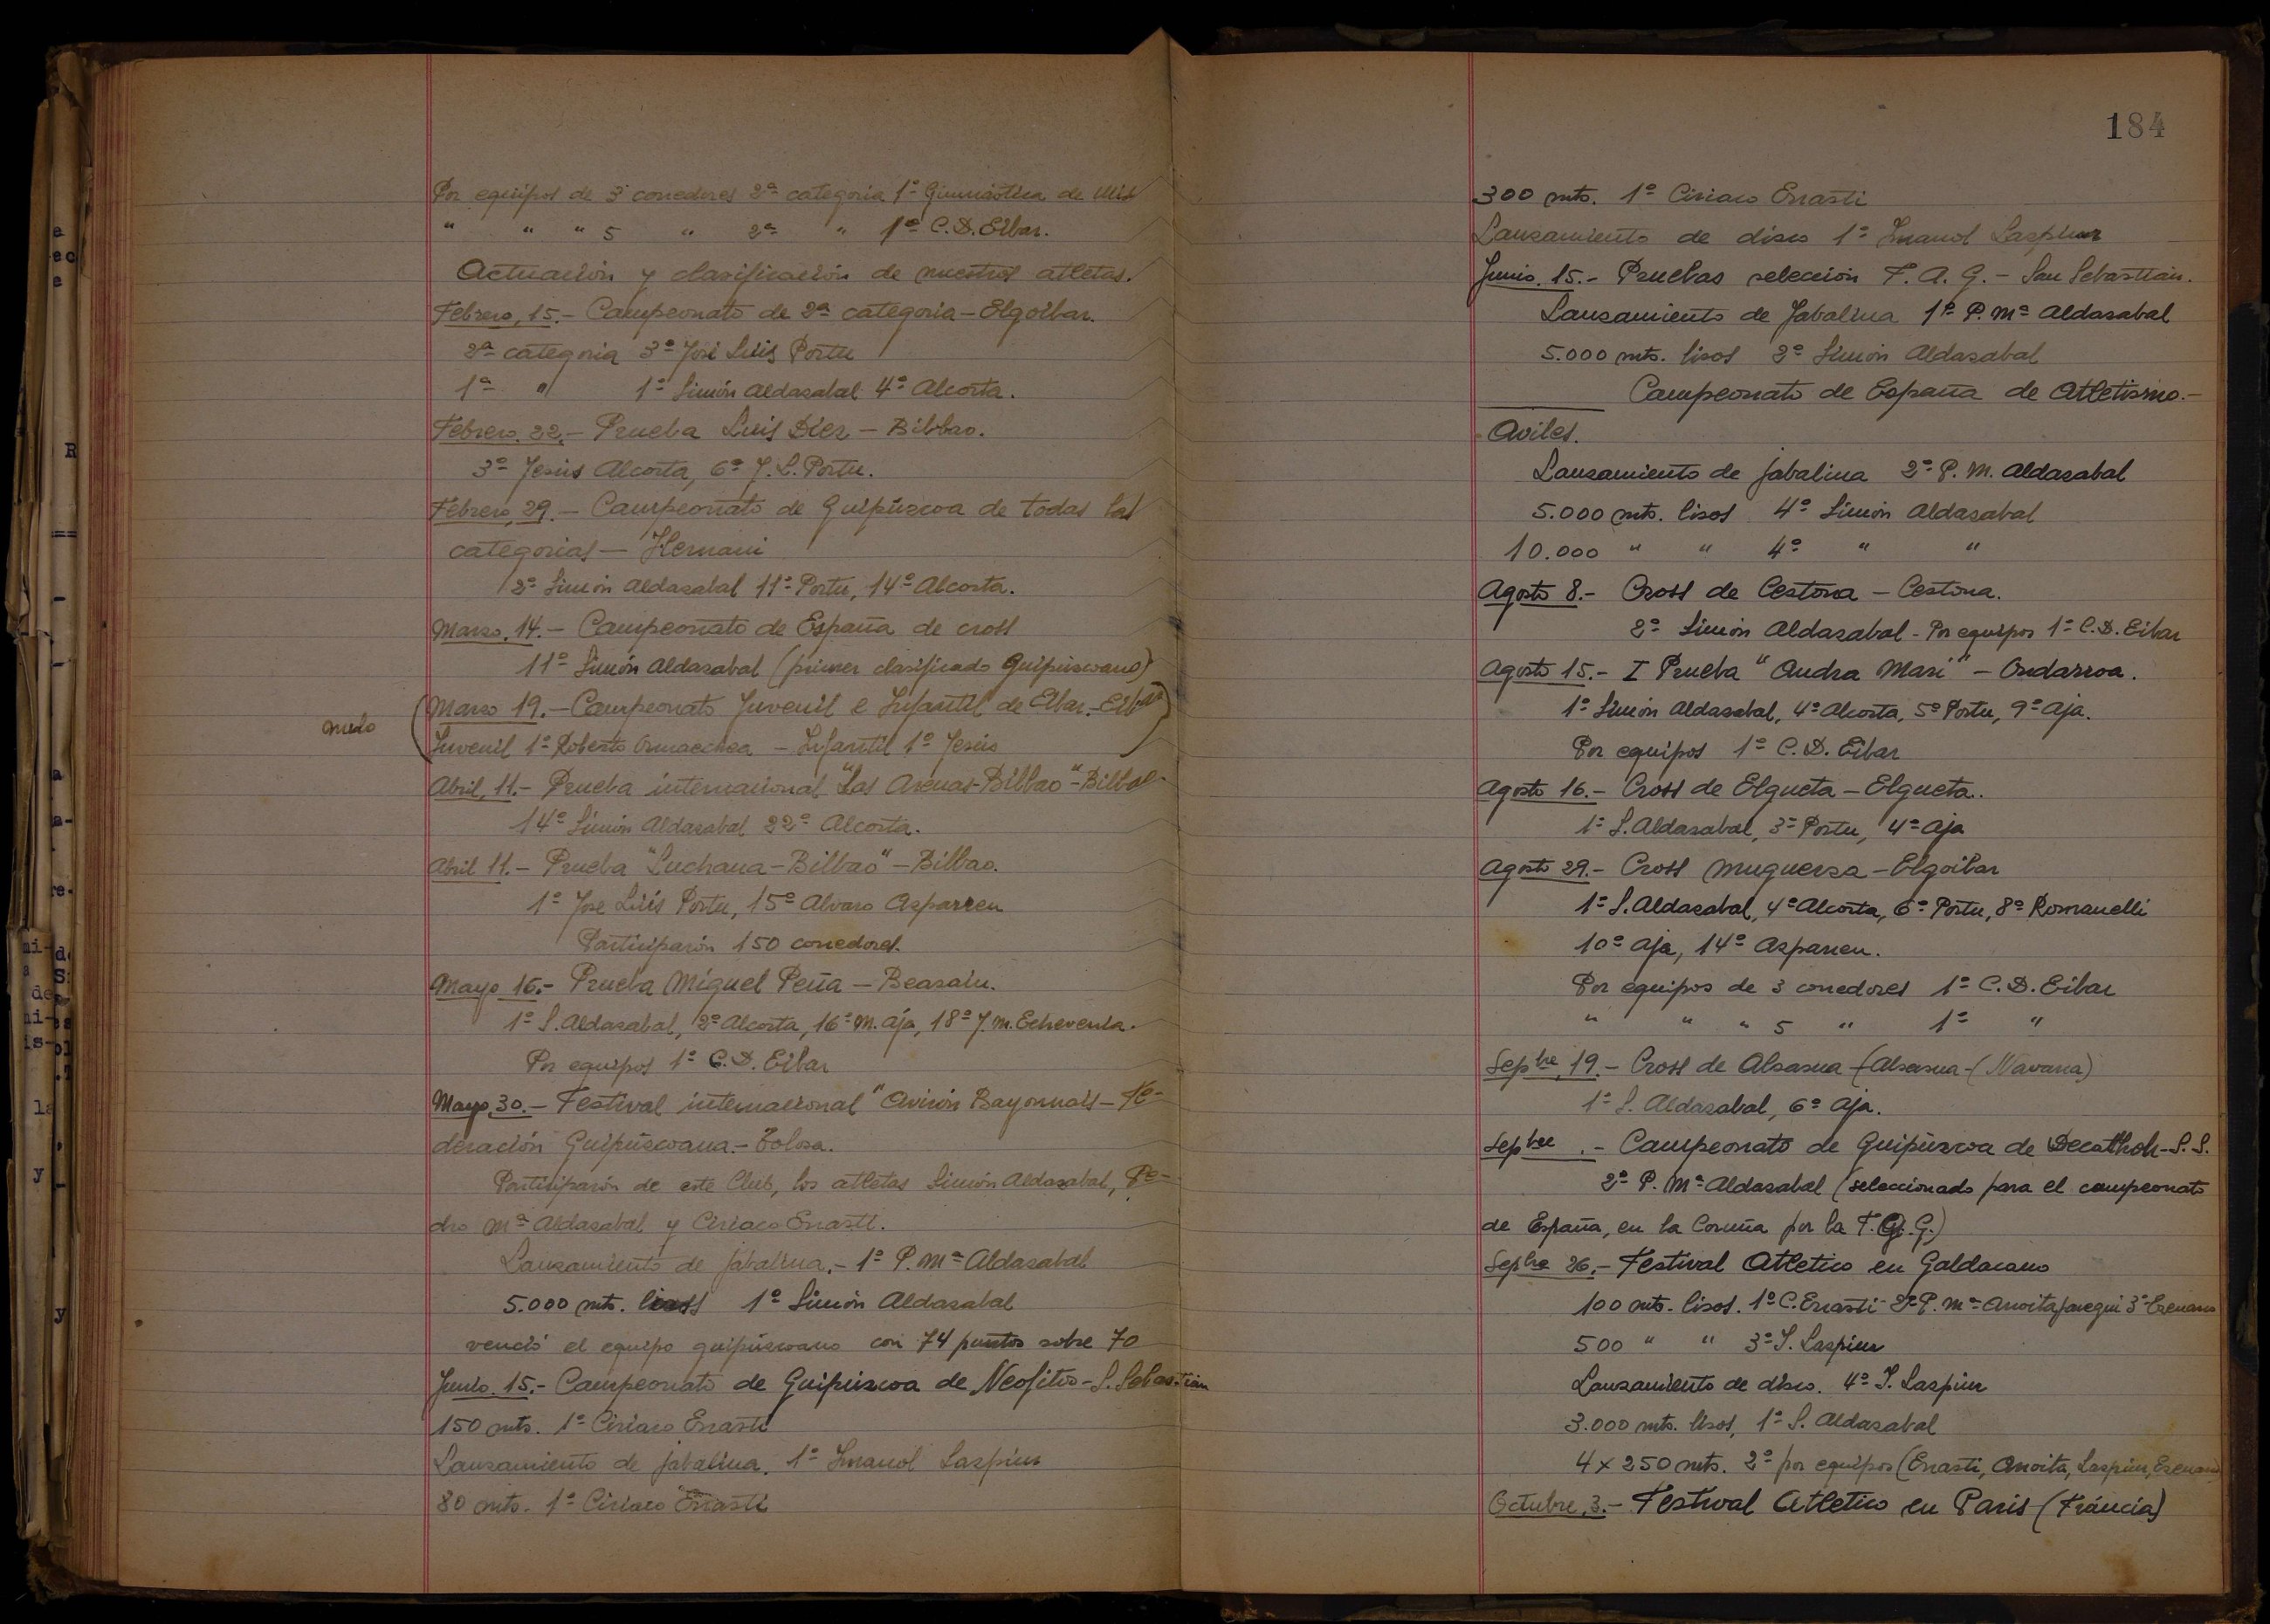 Por equipos de 3 corredores 2ª categoria 1º Gimnástica de
" " " 5 " 2ª " 1º C.D. Eibar.
Actuación y clasificación de nuestros atletas.
Febrero, 15.- Campeonato de 2ª categoria - Elgoibar.
2ª categoria 3º José Luis Portu
1ª " 1º Simón Aldazabal 4º Alcorta.
Febrero, 22.- Prueba Luis Diez - Bilbao.
3º Jesús Alcorta, 6º J.L. Portu.
Febrero, 29.- Campeonato de Guipúzcoa de todas las
categorias - Hernani
2º Simón Aldazabal 11º Portu, 14º Alcorta.
Marzo, 14.- Campeonato de España de cross
11º Simón Aldazabal (primer clasificado Guipúzcoano)
(Marzo 19.- Campeonato Juvenil e Infantil de Eibar.- Eibar)
nulo
Juvenil 1º Roberto Ormaechea - Infantil 1º Jesús
Abril, 11.- Prueba internacional "Las Arenas-Bilbao" - Bilbao
14º Simón Aldazabal 22º Alcorta.
Abril 11.- Prueba "Luchana-Bilbao" - Bilbao.
1º Jose Luis Portu, 15º Alvaro Azparren
Participarón 150 corredores.
Mayo 16.- Prueba Miguel Peña - Beasain.
1º S. Aldazabal, 2º Alcorta, 16º M. Aja, 18º J.M. Echeverria.
Por equipos 1º C.D. Eibar
Mayo, 30.- Festival internacional "Avirón Bayonnais - Fe-
deración Guipúzcoana.- Tolosa.
Participarón de este Club, los atletas Simón Aldazabal, Pe-
dro Mª Aldazabal y Ciriaco Errasti.
Lanzamiento de jabalina.- 1º P. Mª Aldazabal
5.000 mts. lisos 1º Simón Aldazabal
venció el equipo guipúzcoano con 74 puntos sobre 70
Junio. 15.- Campeonato de Guipúzcoa de Neofitos - S. Sebastian
150 mts. 1º Ciriaco Errasti
Lanzamiento de jabalina. 1º Imanol Laspiur
80 mts. 1º Ciriaco Errasti
184
300 mts. 1º Ciriaco Errasti
Lanzamiento de disco 1º Imanol Laspiur
Junio. 15.- Pruebas selección F.A.G. - San Sebastián.
Lanzamiento de Jabalina 1º P. Mª Aldazabal
5.000 mts. lisos 2º Simón Aldazabal
Campeonato de España de Atletismo.-
Aviles.
Lanzamiento de jabalina 2º P.M. Aldazabal
5.000 mts. lisos 4º Simón Aldazabal
10.000 " " 4º " "
Agosto 8.- Cross de Cestona - Cestona.
2º Simón Aldazabal - Por equipos 1º C.D. Eibar
Agosto 15.- I Prueba "Andra Mari" - Ondarroa.
1º Simón Aldazabal, 4º Alcorta, 5º Portu, 9º Aja.
Por equipos 1º C.D. Eibar
Agosto 16.- Cross de Elgueta - Elgueta.
1º S. Aldazabal, 3º Portu, 4º Aja
Agosto 29.- Cross Muguerza - Elgoibar
1º S. Aldazabal, 4º Alcorta, 6º Portu, 8º Romanelli
10º Aja, 14º Azparren.
Por equipos de 3 corredores 1º C.D. Eibar
" " " 5 " 1º "
Sepbre, 19.- Cross de Alsasua - (Alsasua - (Navarra)
1º S. Aldazabal, 6º Aja.
Sepbre .- Campeonato de Guipúzcoa de Decathlon - S.S.
2º P. Mª Aldazabal (seleccionado para el campeonato
de España, en la Coruña por la F.G.G.)
Sepbre 26.- Festival Atletico en Galdacano
100 mts. lisos. 1º C. Errasti 2º P. Mª Anoitajauregui 3º Ezenarro
500 " " 3º I. Laspiur
Lanzamiento de disco. 4º I. Laspiur
3.000 mts. lisos, 1º S. Aldazabal
4 x 250 mts. 2º por equipos (Errasti, Anoita, Laspiur,
Octubre, 3.- Festival Atletico en Paris - (Fráncia)